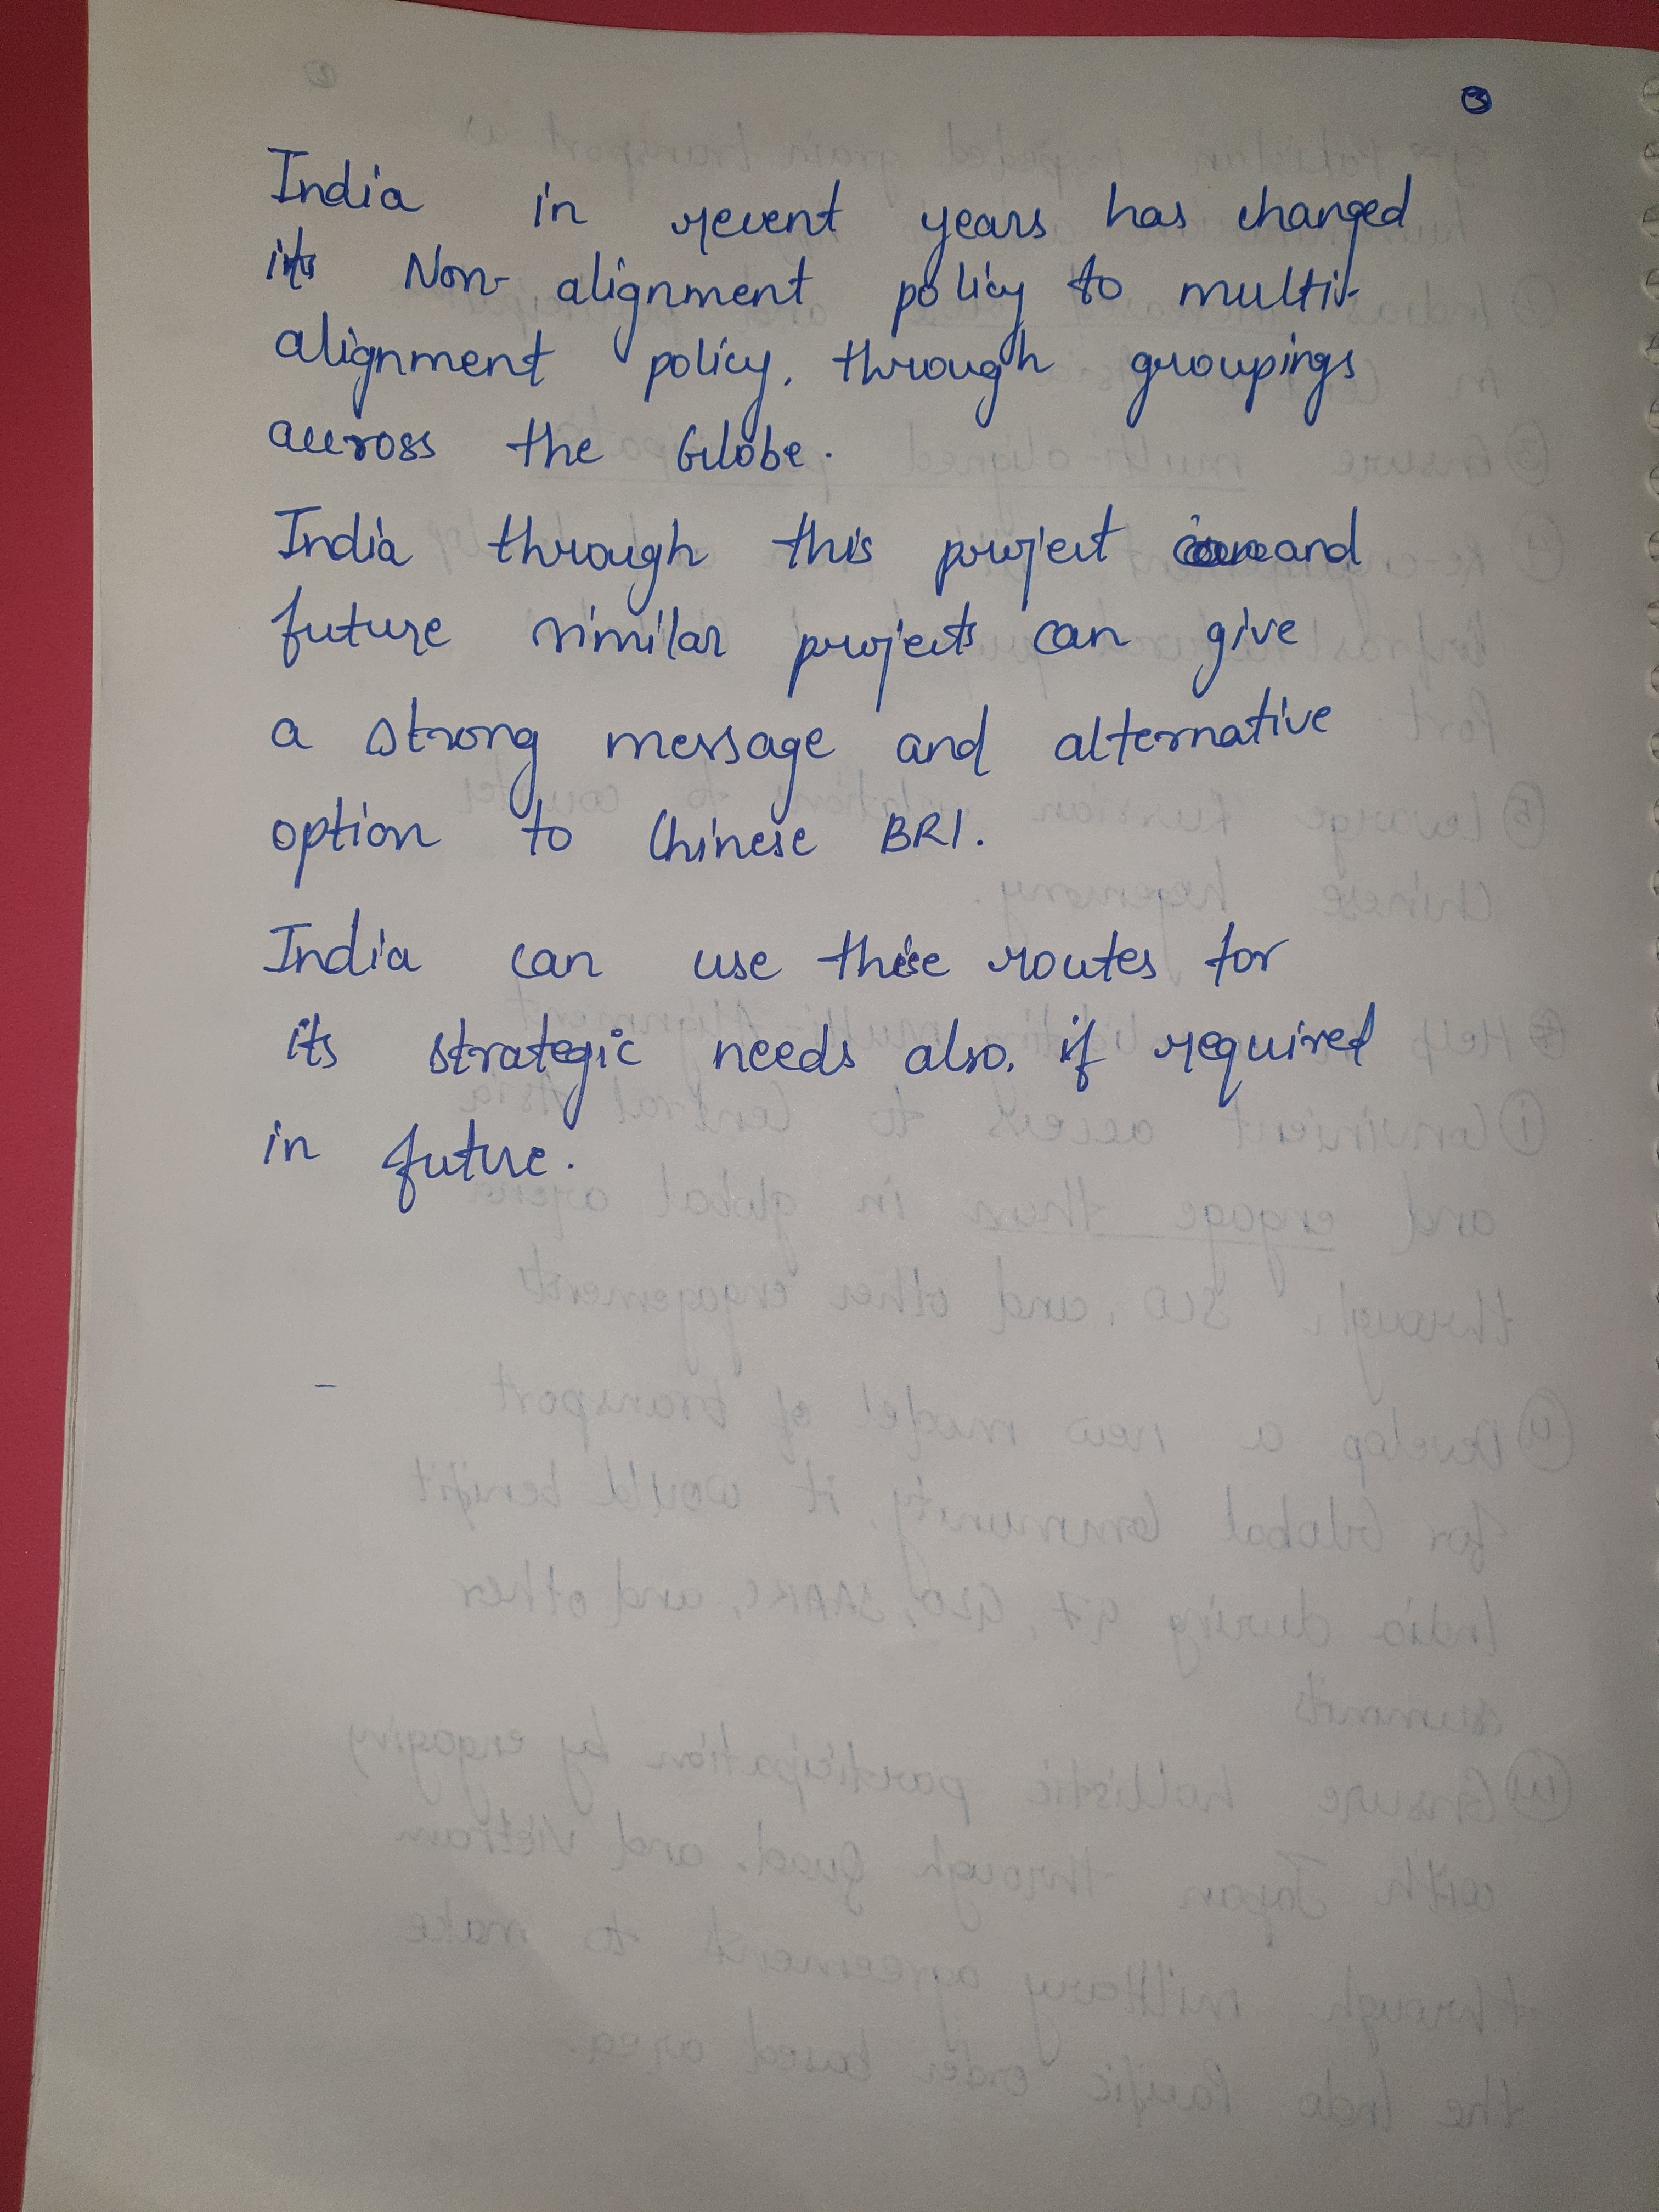 3
India in recent years has changed
its Non-alignment policy to multi-
alignment policy, through groupings
across the Globe.
India through this project and
future similar projects can give
a strong message and alternative
option to Chinese BRI.
India can use these routes for
its strategic needs also, if required
in future.